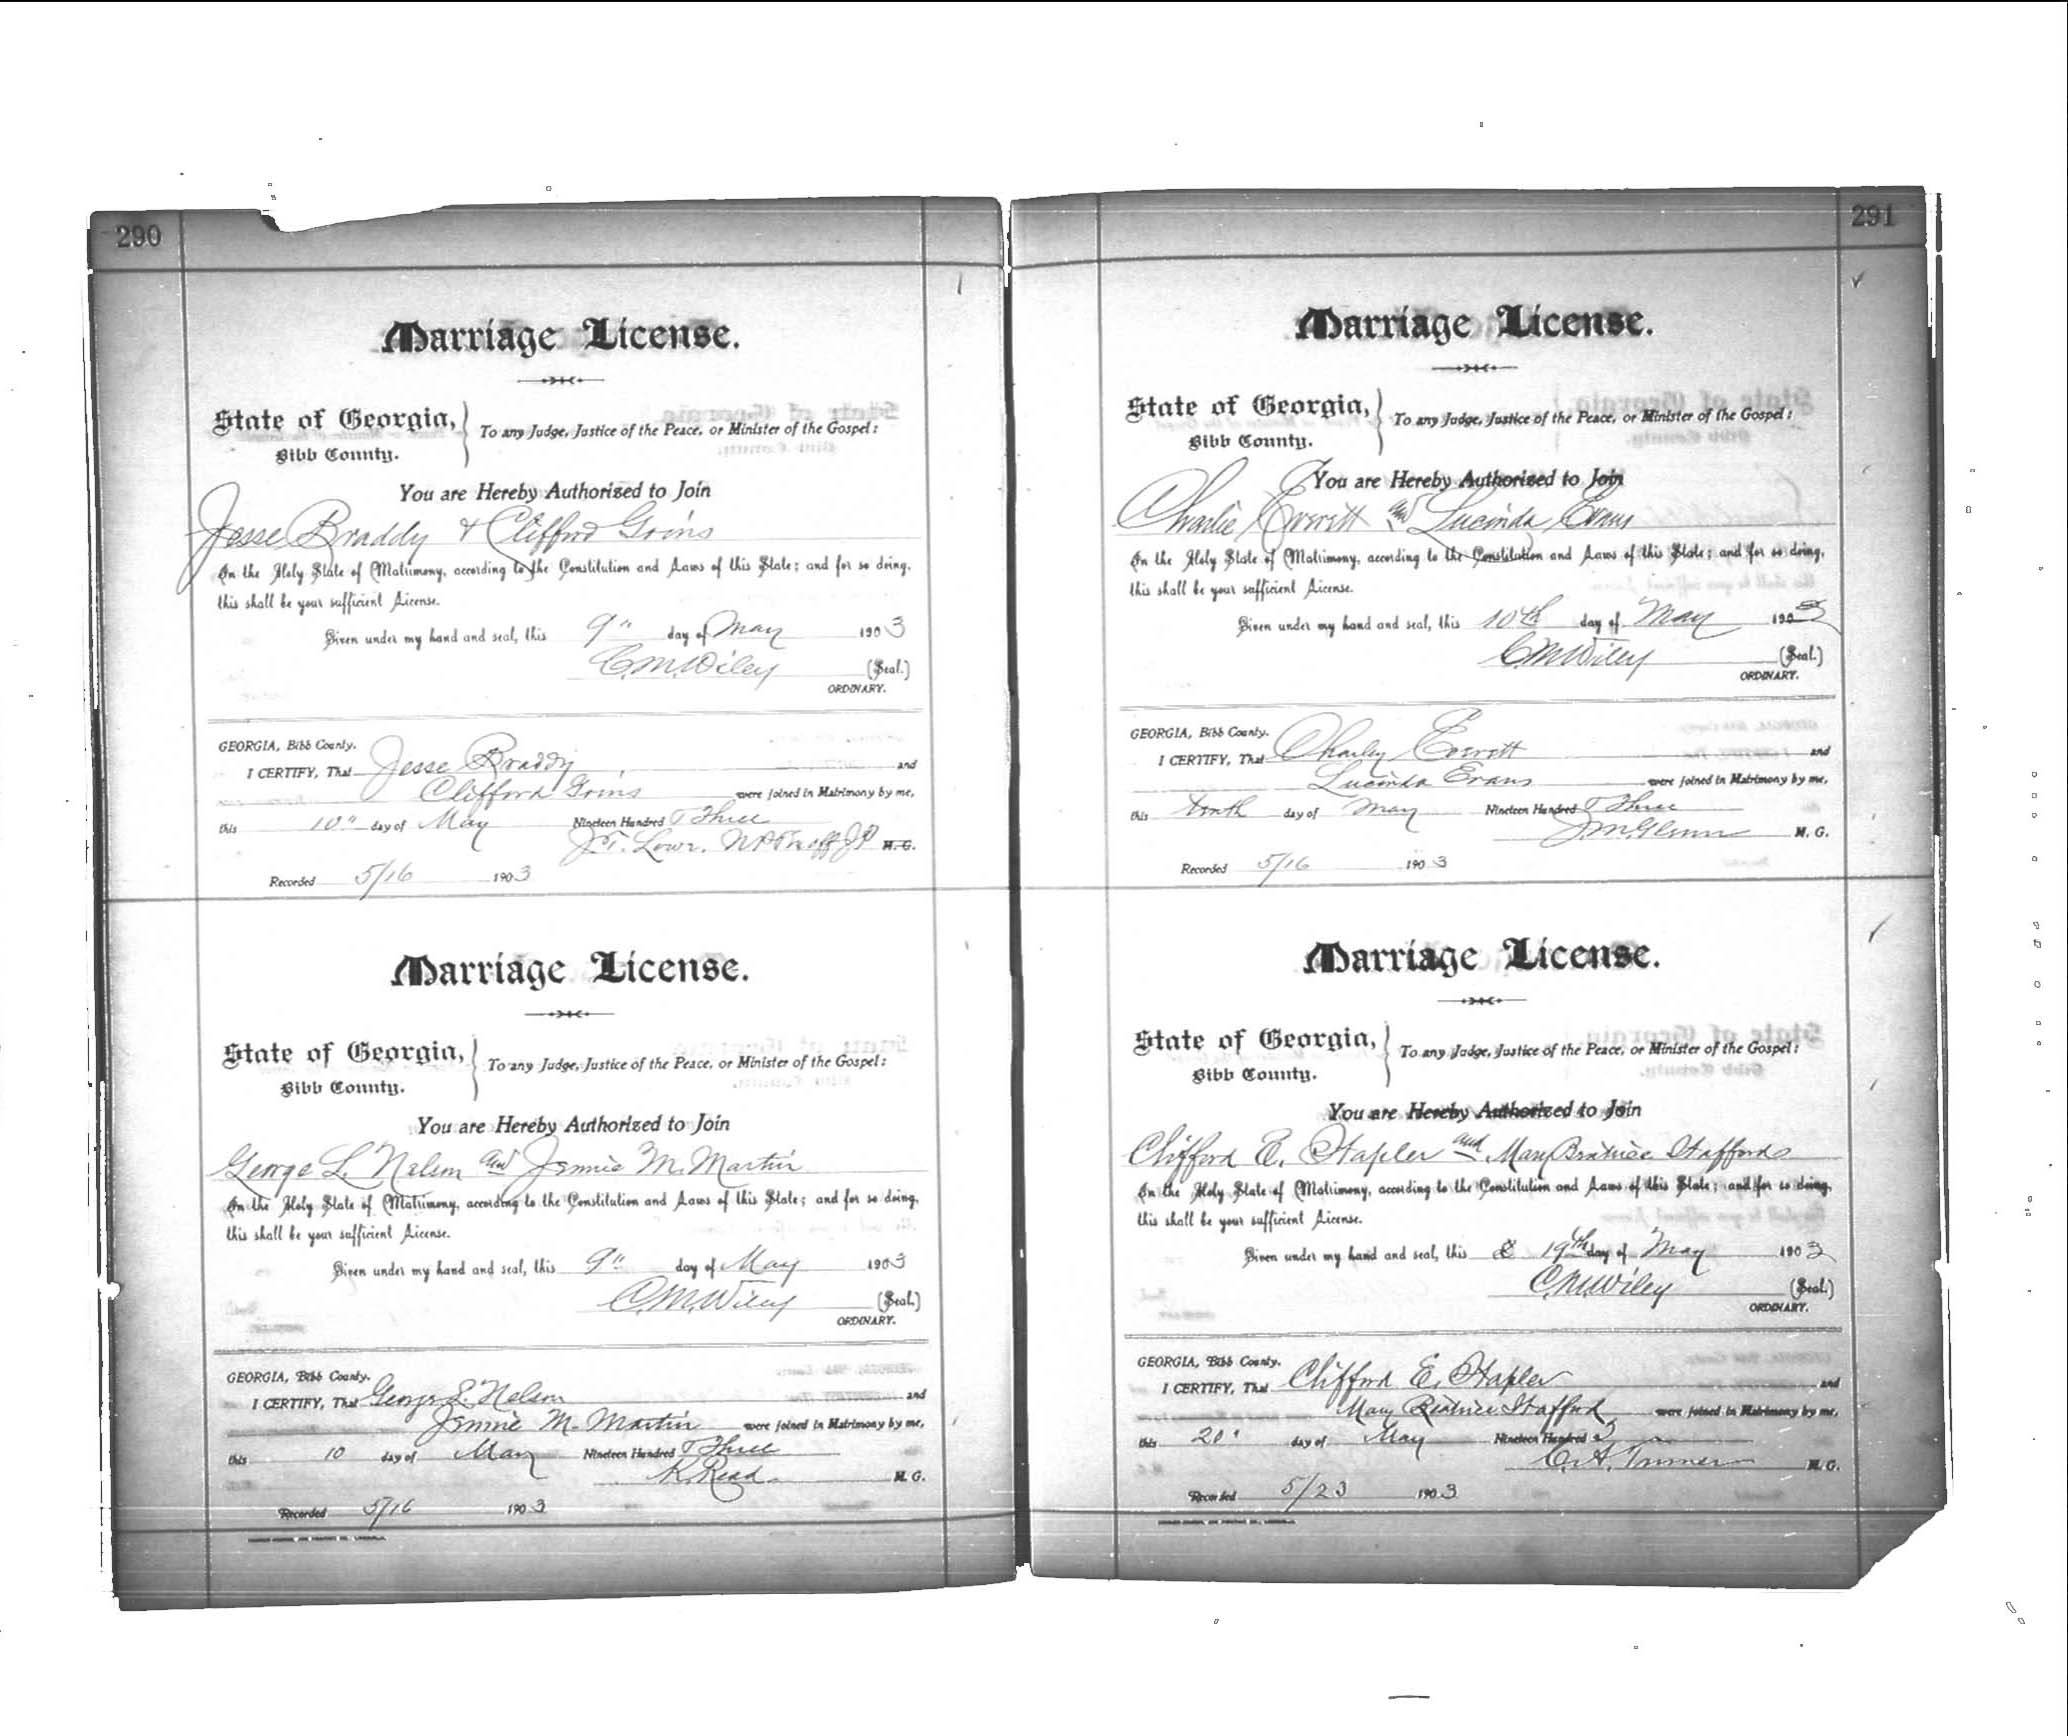 290
Marriage License.
State of Georgia,
Bibb County.
To any Judge, Justice of the Peace, or Minister of the Gospel:
You are Hereby Authorized to Join
Jesse Braddy & Clifford Goins
In the Holy State of Matrimony, according to the Constitution and Laws of this State; and for so doing,
this shall be your sufficient License.
Given under my hand and seal, this 9" day of May 1903
C.M. Wiley (Seal.)
ORDINARY.
GEORGIA, Bibb County.
I CERTIFY, That Jesse Braddy and
Clifford Goins were joined in Matrimony by me,
this 10" day of May Nineteen Hundred Three
J.T. M. G.
Recorded 5/16 1903
Marriage License.
State of Georgia,
Bibb County.
To any Judge, Justice of the Peace, or Minister of the Gospel:
You are Hereby Authorized to Join
George L. Nelson and Jennie M. Martin
In the Holy State of Matrimony, according to the Constitution and Laws of this State; and for so doing,
this shall be your sufficient License.
Given under my hand and seal, this 9" day of May 1903
C.M. Wiley (Seal.)
ORDINARY.
GEORGIA, Bibb County.
I CERTIFY, That George L. Nelson and
Jennie M. Martin were joined in Matrimony by me,
this 10 day of May Nineteen Hundred Three
Read M. G.
Recorded 5/16 1903
291
Marriage License.
State of Georgia,
Bibb County.
To any Judge, Justice of the Peace, or Minister of the Gospel:
You are Hereby Authorized to Join
Charlie Everett and Lucinda Evans
In the Holy State of Matrimony, according to the Constitution and Laws of this State; and for so doing,
this shall be your sufficient License.
Given under my hand and seal, this 10th day of May 1903
C.M. Wiley (Seal.)
ORDINARY.
GEORGIA, Bibb County.
I CERTIFY, That Charley Everett and
Lucinda Evans were joined in Matrimony by me,
this tenth day of May Nineteen Hundred Three
J M Glenn M. G.
Recorded 5/16 1903
Marriage License.
State of Georgia,
Bibb County.
To any Judge, Justice of the Peace, or Minister of the Gospel:
You are Hereby Authorized to Join
Clifford E. Stapler and Mary Beatrice Stafford
In the Holy State of Matrimony, according to the Constitution and Laws of this State; and for so doing,
this shall be your sufficient License.
Given under my hand and seal, this 19th day of May 1903
C.M. Wiley (Seal.)
ORDINARY.
GEORGIA, Bibb County.
I CERTIFY, That Clifford E. Stapler and
Mary Beatrice Stafford were joined in Matrimony by me,
this 20" day of May Nineteen Hundred 3
M. G.
Recorded 5/23 1903